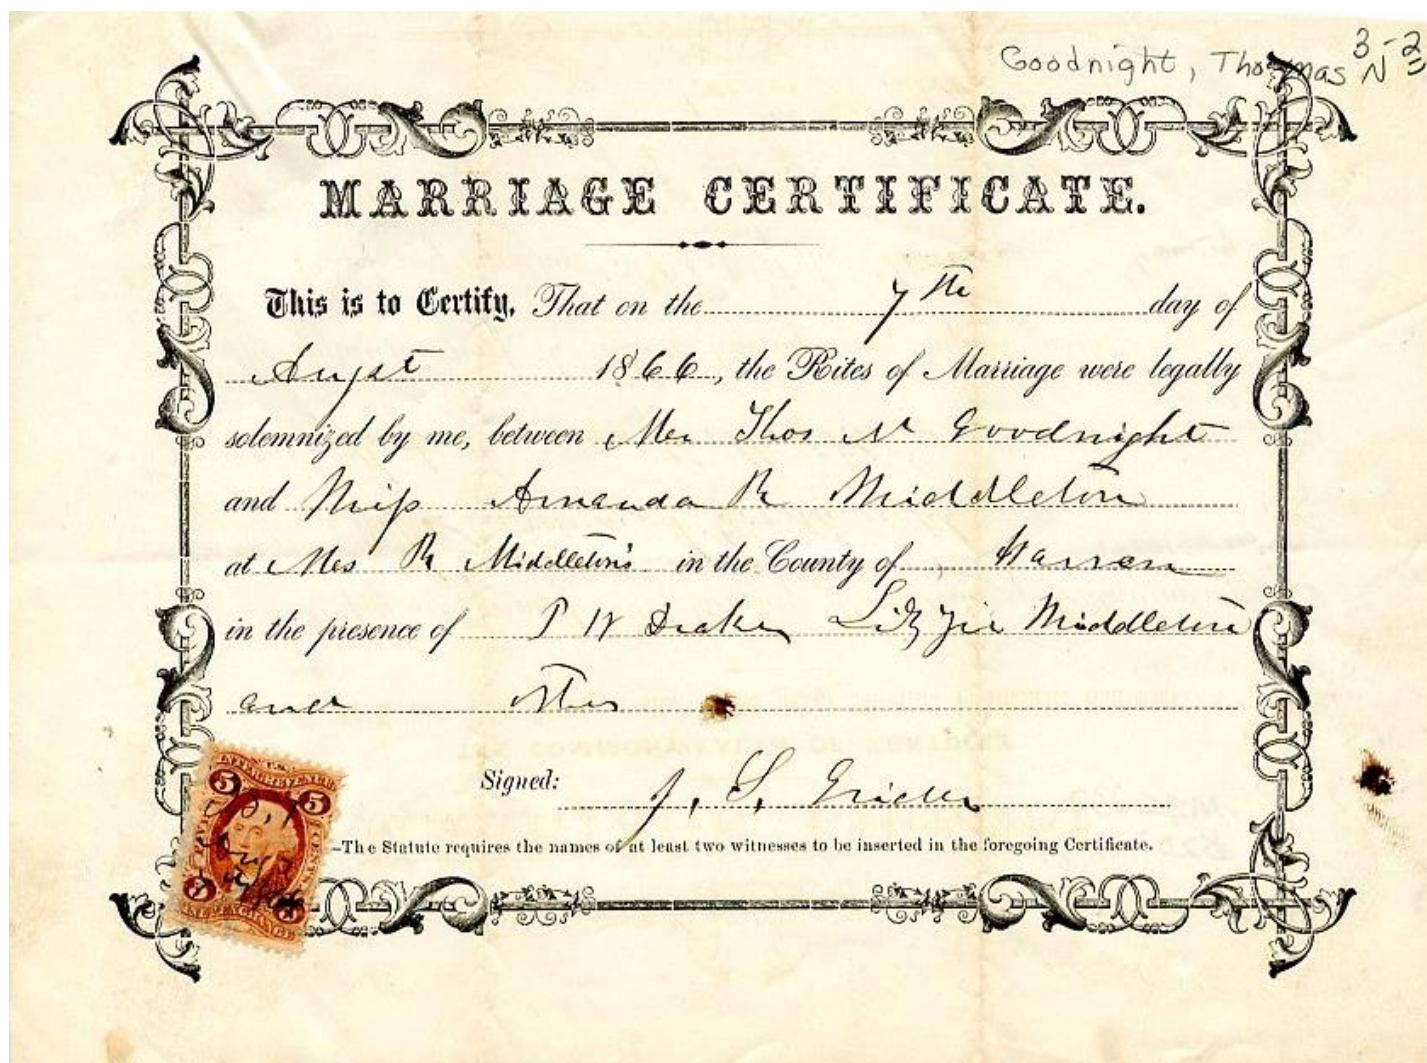 Goodnight, Thomas N 3-2
MARRIAGE CERTIFICATE.
This is to Certify, That on the 7th day of
Augst 1866, the Rites of Marriage were legally
solemnized by me, between Mr Thos N Goodnight
and Miss Amanda R Middleton
at Mrs R Middleton's in the County of Warren
in the presence of P W Drake Lizzie Middleton
and others
Signed: J. S. Grider
—The Statute requires the names of at least two witnesses to be inserted in the foregoing Certificate.
5 5
CENTS
5 5